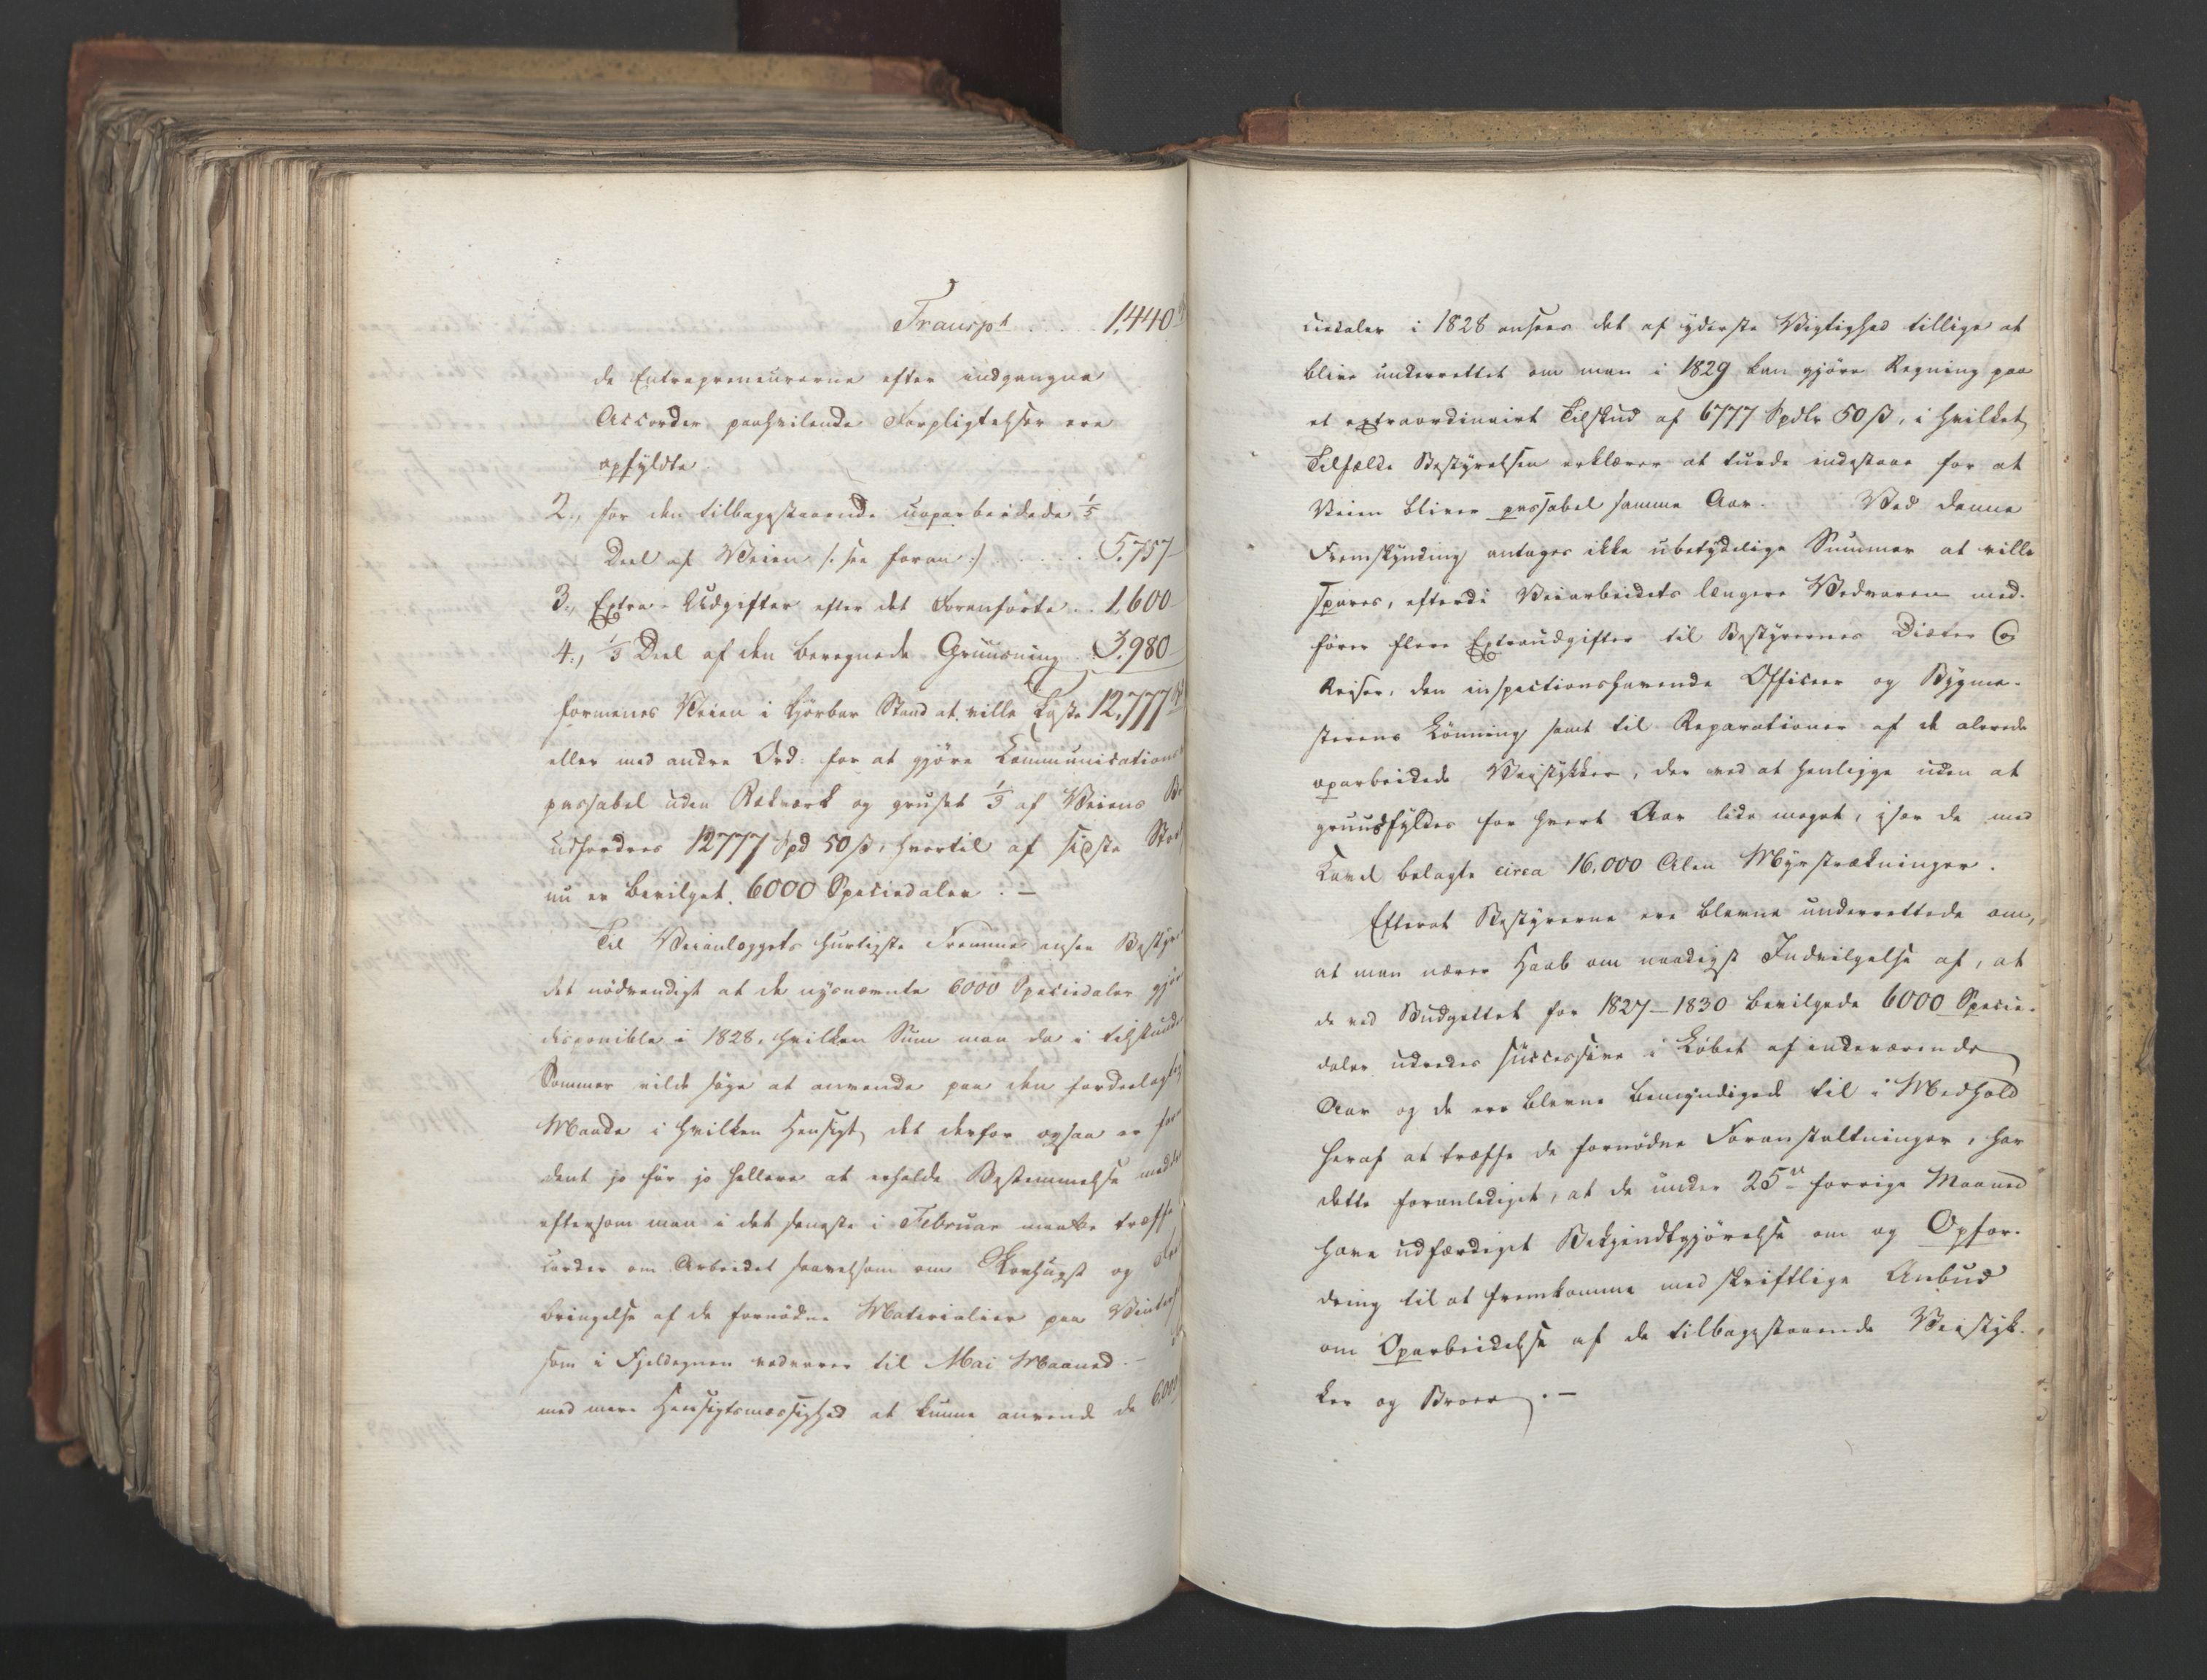 Transpt . . . . . 1,440
de Entrepreneurerne efter indgangne
Accorder paahvilende Forpligtelser ere
opfyldte
2., for den tilbagestaaende uoparbeidede 1/5
Deel af Veien /: see foran :/ . . . . . 5,757
3., Extra-Udgifter efter det Foranførte . . 1,600
4., 1/3 Deel af den beregnede Gruusning . . 3,980
formenes Veien i kjørbar Stand at ville koste 12,777
eller med andre Ord: for at gjøre Communicationen
passabel uden Rækværk og gruset 1/3 af Veiens
udfordres 12777 Spd 50 ß, hvortil af sidste
nu er bevilget 6000 Speciedaler. —
Til Veianlæggets hurtigste Fremme ansee
det nødvendigt at de nysnævnte 6000 Speciedaler
disponible i 1828, hvilken Sum man da i tilstundende
Sommer vilde søge at anvende paa den fordeelagtigste
Maade i hvilken Hensigt det derfor ogsaa er
dent jo før jo hellere at erholde Bestemmelse
eftersom man i det seneste i Februar maatte træffe
corder om Arbeidet saavelsom om Udhugst og
bringelse af de fornødne Materialier paa
som i Fjeldegnen vedvarer til Mai Maaned. —
med mere Hensigtsmæssighed at kunne anvende de 6000
ciedaler i 1828 ansees det af yderste Vigtighed tillige at
blive underrettet om man i 1829 kan gjøre Regning paa
et extraordinairt Tilskud af 6777 Spdlr 50 ß, i hvilket
Tilfælde Bestyrelsen erklærer at turde indestaae for at
Veien bliver passabel samme Aar. Ved denne
Fremskynding antages ikke ubetydelige Summer at ville
spares, efterdi Veiarbeidets længere Vedvaren med-
fører flere Extraudgifter til Bestyrernes Diæter og
Reiser, den inspectionshavende Officeer og Bygme-
sterens Lønning samt til Reparationer af de alerede
oparbeidede Veistykker, der ved at henligge uden at
gruusfyldes for hvert Aar lide meget, især de med
Kavl belagte circa 16,000 Alen Myrstrækninger.
Efterat Bestyrerne ere blevne underrettede om,
at man nærer Haab om naadigst Indvilgelse af, at
de ved Budgettet for 1827–1830 bevilgede 6000 Specie-
daler udredes successive i Løbet af indeværende
Aar og de ere blevne bemyndigede til i Medhold
heraf at træffe de fornødne Foranstaltninger, har
dette foranlediget, at de under 25de forrige Maaned
have udfærdiget Bekjendtgjørelse om og Opfor-
dring til at fremkomme med skriftlige Anbud
om Oparbeidelse af de tilbagestaaende Veistyk-
ker og Broer. —